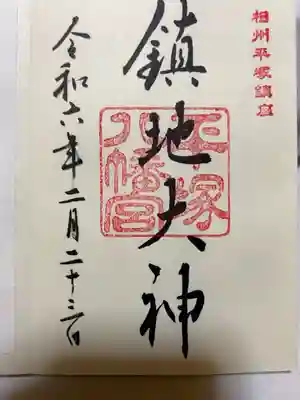 相州平塚鎮座
鎮地大神
平塚八幡宮
令和六年二月二十三日